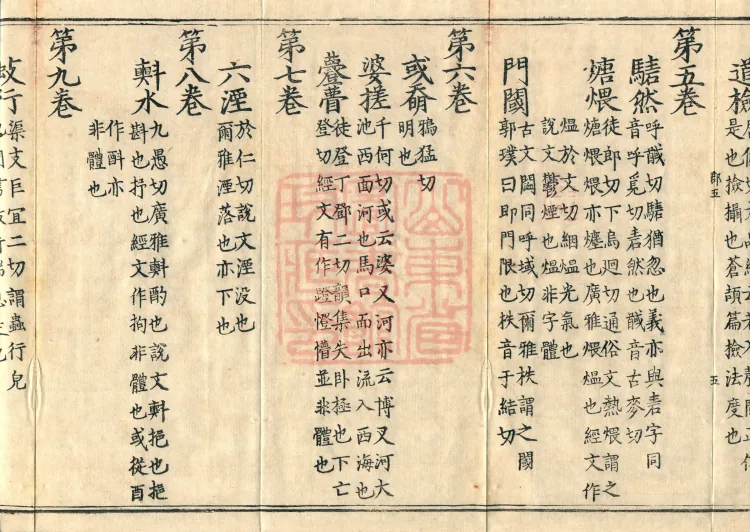 是也撿攝也蒼頡篇撿法度也
第五卷
騞然呼馘切騞猶忽也義亦與砉字同
音呼覓切砉然也馘音古麥切
煻煨徒郎切下烏迴切通俗文熱煨謂之
煻煨煨亦㷮也廣雅煨熅也經文作
熅於文切絪熅光氣也
說文鬱煙也熅非字體
門閫古文閫同呼域切爾雅柣謂之閾
郭璞曰即門限也柣音于結切
第六卷
或奛鴉猛切
明也
婆搓千何切或云婆叉河亦云博叉河大
池西面河也馬口而出流入西海也
徒登丁鄧二切韻集失卧極也下亡
登切經文有作蹬憕懵並非體也
第七卷
六湮於仁切說文湮没也
爾雅湮落也亦下也
第八卷
㪺水九愚切廣雅㪺酌也說文㪺挹也挹
斟也抒也經文作拘非體也或從酉
作酙亦
非體也
第九卷
蚑行渠支巨宜二切謂蟲行皃
郎五
五